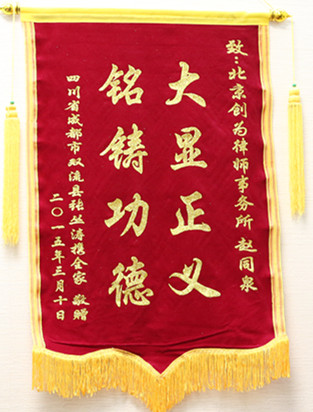 致：北京创为律师事务所 赵同泉
大显正义
铭铸功德
四川省成都市双流县张丛涛携全家 敬赠
二〇一五年三月十日